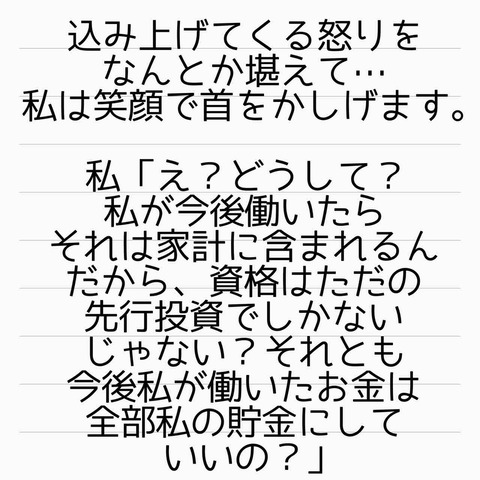 込み上げてくる怒りを
なんとか堪えて…
私は笑顔で首をかしげます。
私「え？どうして？
私が今後働いたら
それは家計に含まれるん
だから、資格はただの
先行投資でしかない
じゃない？それとも
今後私が働いたお金は
全部私の貯金にして
いいの？」